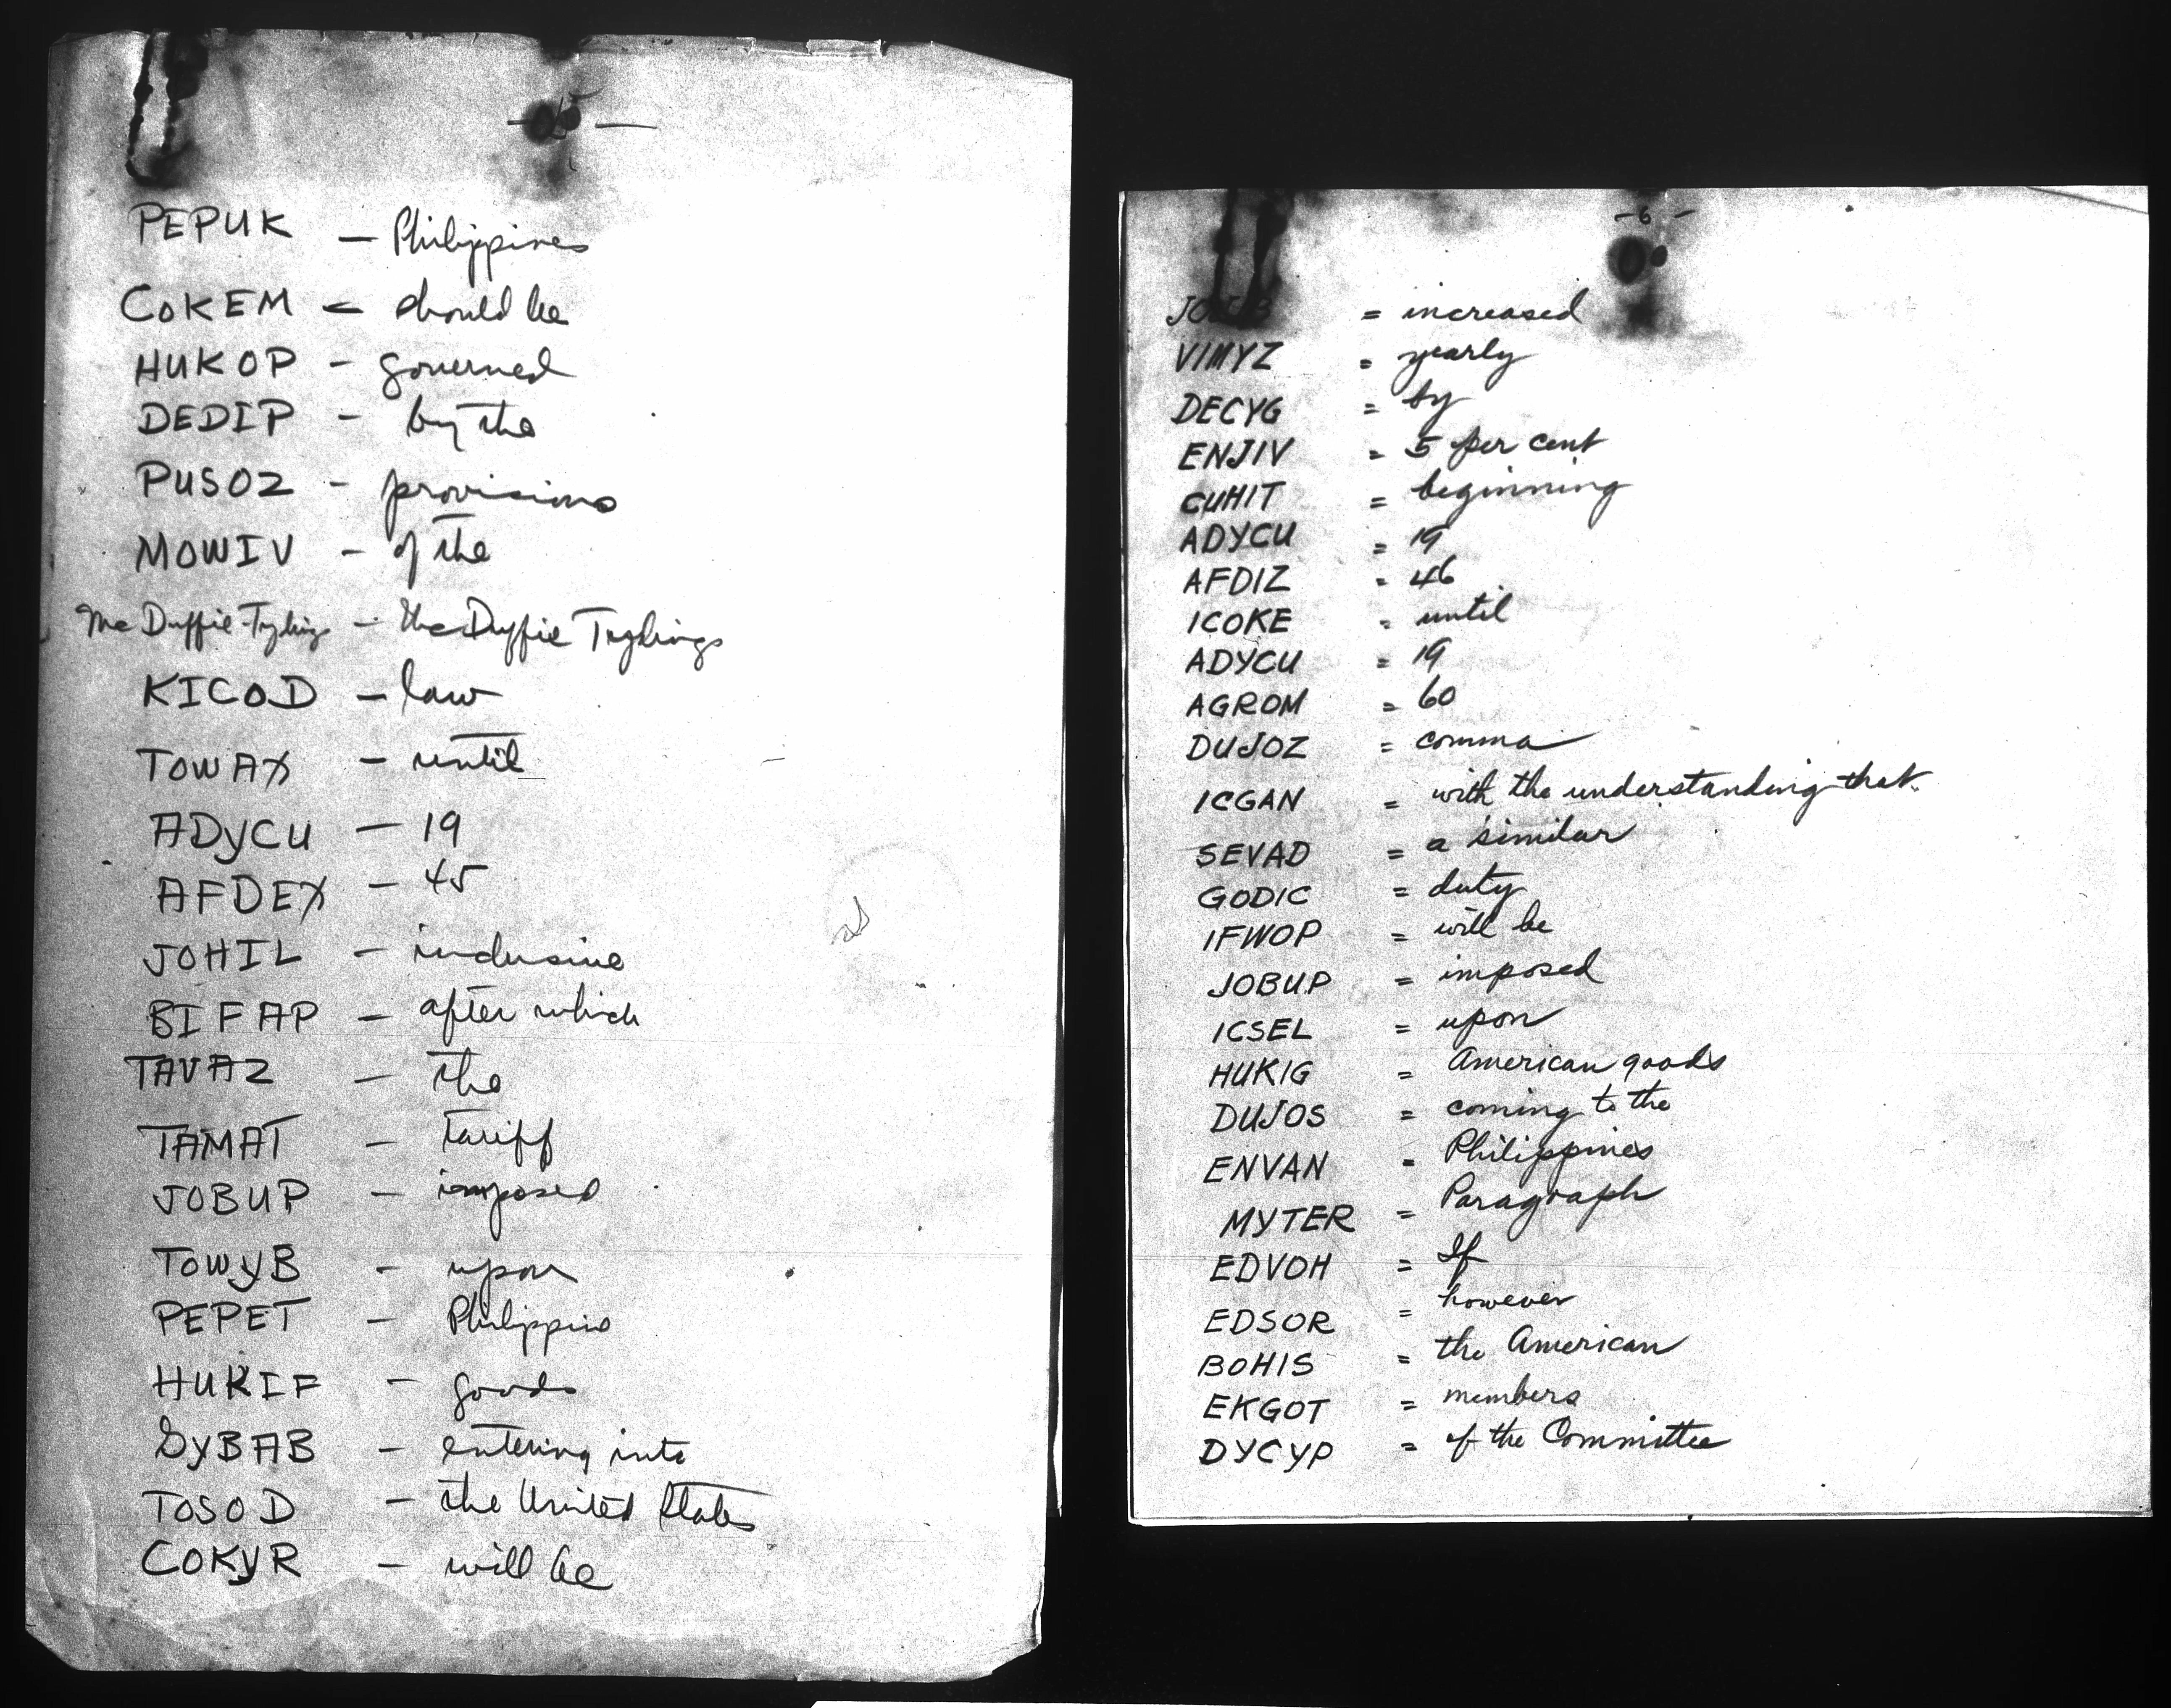 PEPUK — Philippines
COKEM — should be
HUKOP - governed
DEDIP - by the
PUSOZ - provisions
MOWIV - of the
McDuffie-Tydings - the Duffie Tydings
KICOD - law
TOWAX - until
ADYCU — 19
AFDEX - 45
JOHIL - inclusive
BIFAP - after which
TAVAZ - the
TAMAT - tariff
JOBUP - imposed
TOWYB - upon
PEPET - Philippine
HUKIF - goods
GYBAB - entering into
TOSOD - the United States
COKYR - will be
-6-
= increased
VIMYZ = yearly
DECYG = by
ENJIV = 5 per cent
CUHIT = beginning
ADYCU = 19
AFDIZ = 46
ICOKE = until
ADYCU = 19
AGROM = 60
DUJOZ = comma
ICGAN = with the understanding that.
SEVAD = a similar
GODIC = duty
IFWOP = will be
JOBUP = imposed
ICSEL = upon
HUKIG = American goods
DUJOS = coming to the
ENVAN = Philippines
MYTER = Paragraph
EDVOH = If
EDSOR = however
BOHIS = the American
EKGOT = members
DYCYP = of the Committee